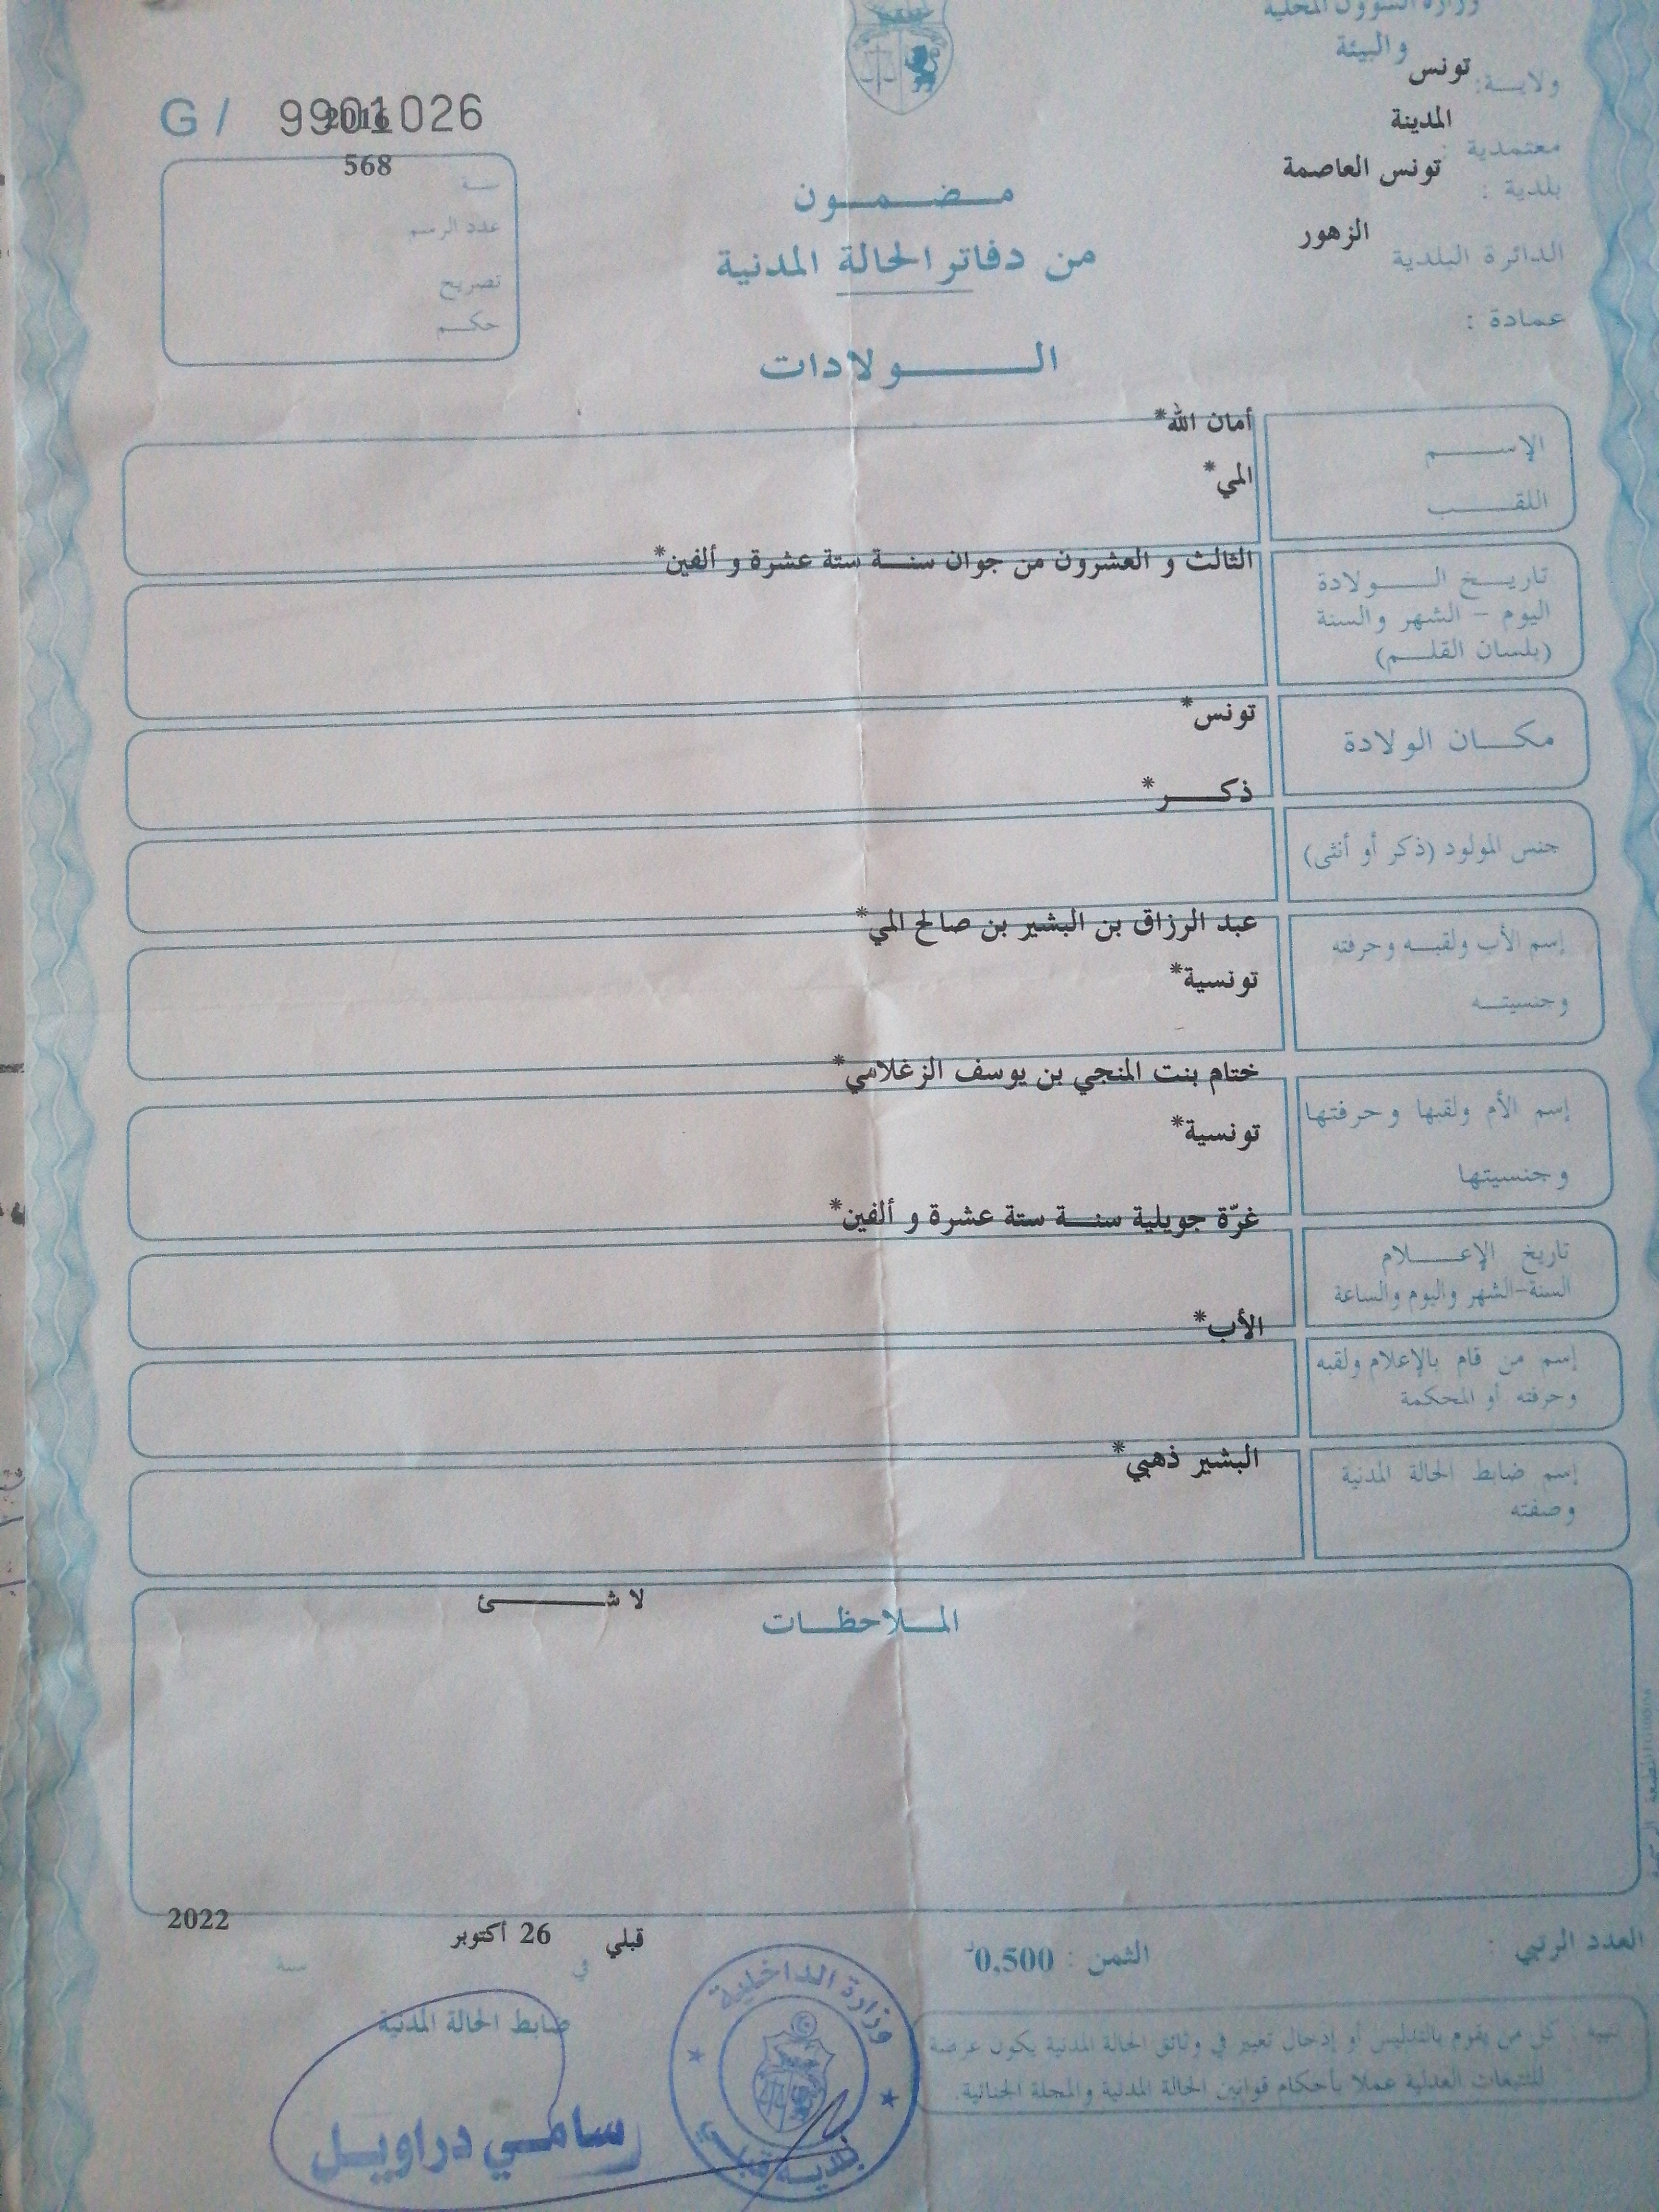 وزارة الشؤون المحلية
و البيئة
ولايـــة: تونس
معتمدية : المدينة
بلدية : تونس العاصمة
الدائرة البلدية الزهور
عمادة :
G / 9901026
2016
568
سنة
عدد الرسم
تصريح
حكم
مضمون
من دفاتر الحالة المدنية
الولادات
الإسم
أمان الله*
اللقب
المي*
تاريخ الولادة
اليوم - الشهر والسنة
(بلسان القلم)
الثالث و العشرون من جوان سنة ستة عشرة و ألفين*
مكان الولادة
تونس*
جنس المولود (ذكر أو أنثى)
ذكر*
إسم الأب ولقبه وحرفته
وجنسيته
عبد الرزاق بن البشير بن صالح المي*
تونسية*
إسم الأم ولقبها وحرفتها
وجنسيتها
ختام بنت المنجي بن يوسف الزغلامي*
تونسية*
تاريخ الإعلام
السنة-الشهر واليوم والساعة
غرّة جويلية سنة ستة عشرة و ألفين*
إسم من قام بالإعلام ولقبه
وحرفته أو المحكمة
الأب*
إسم ضابط الحالة المدنية
وصفته
البشير ذهبي*
الملاحظات
لا شئ
العدد الرتبي :
الثمن : 0,500د
قبلي في 26 أكتوبر سنة 2022
ضابط الحالة المدنية
سامي دراويل
وزارة الداخلية
بلدية قبلي
تنبيه : كل من يقوم بالتدليس أو إدخال تغيير في وثائق الحالة المدنية يكون عرضة
للتتبعات العدلية عملا بأحكام قوانين الحالة المدنية والمجلة الجنائية.